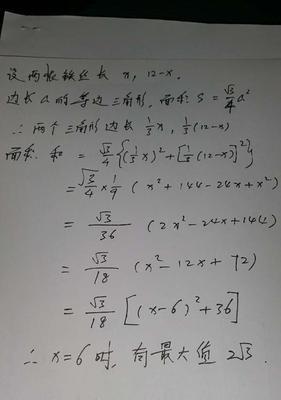 设两根铁丝长 x, 12-x.
边长 a 的等边三角形, 面积 S = √3/4 a²
∴ 两个三角形边长 1/3 x, 1/3 (12-x)
面积和 = √3/4 {(1/3 x)² + [1/3 (12-x)]²}
= √3/4 × 1/9 (x² + 144 - 24x + x²)
= √3/36 (2x² - 24x + 144)
= √3/18 (x² - 12x + 72)
= √3/18 [(x-6)² + 36]
∴ x = 6 时, 有最大值 2√3.